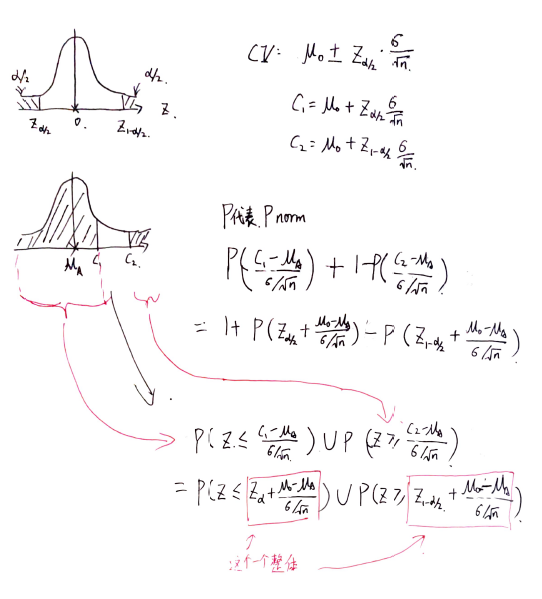 α/2 α/2
Z_{α/2} 0. Z_{1-α/2} Z.
CV: μ₀ ± Z_{α/2} · σ/√n.
C₁ = μ₀ + Z_{α/2} σ/√n
C₂ = μ₀ + Z_{1-α/2} σ/√n
μ_A C₁ C₂.
P代表. Pnorm
P((C₁-μ_A)/(σ/√n)) + 1-P((C₂-μ_A)/(σ/√n))
= 1+ P(Z_{α/2} + (μ₀-μ_A)/(σ/√n)) - P(Z_{1-α/2} + (μ₀-μ_A)/(σ/√n))
P(Z ≤ (C₁-μ_A)/(σ/√n)) ∪ P(Z ≥ (C₂-μ_A)/(σ/√n))
= P(Z ≤ Z_α + (μ₀-μ_A)/(σ/√n)) ∪ P(Z ≥ Z_{1-α/2} + (μ₀-μ_A)/(σ/√n))
这个一个整体